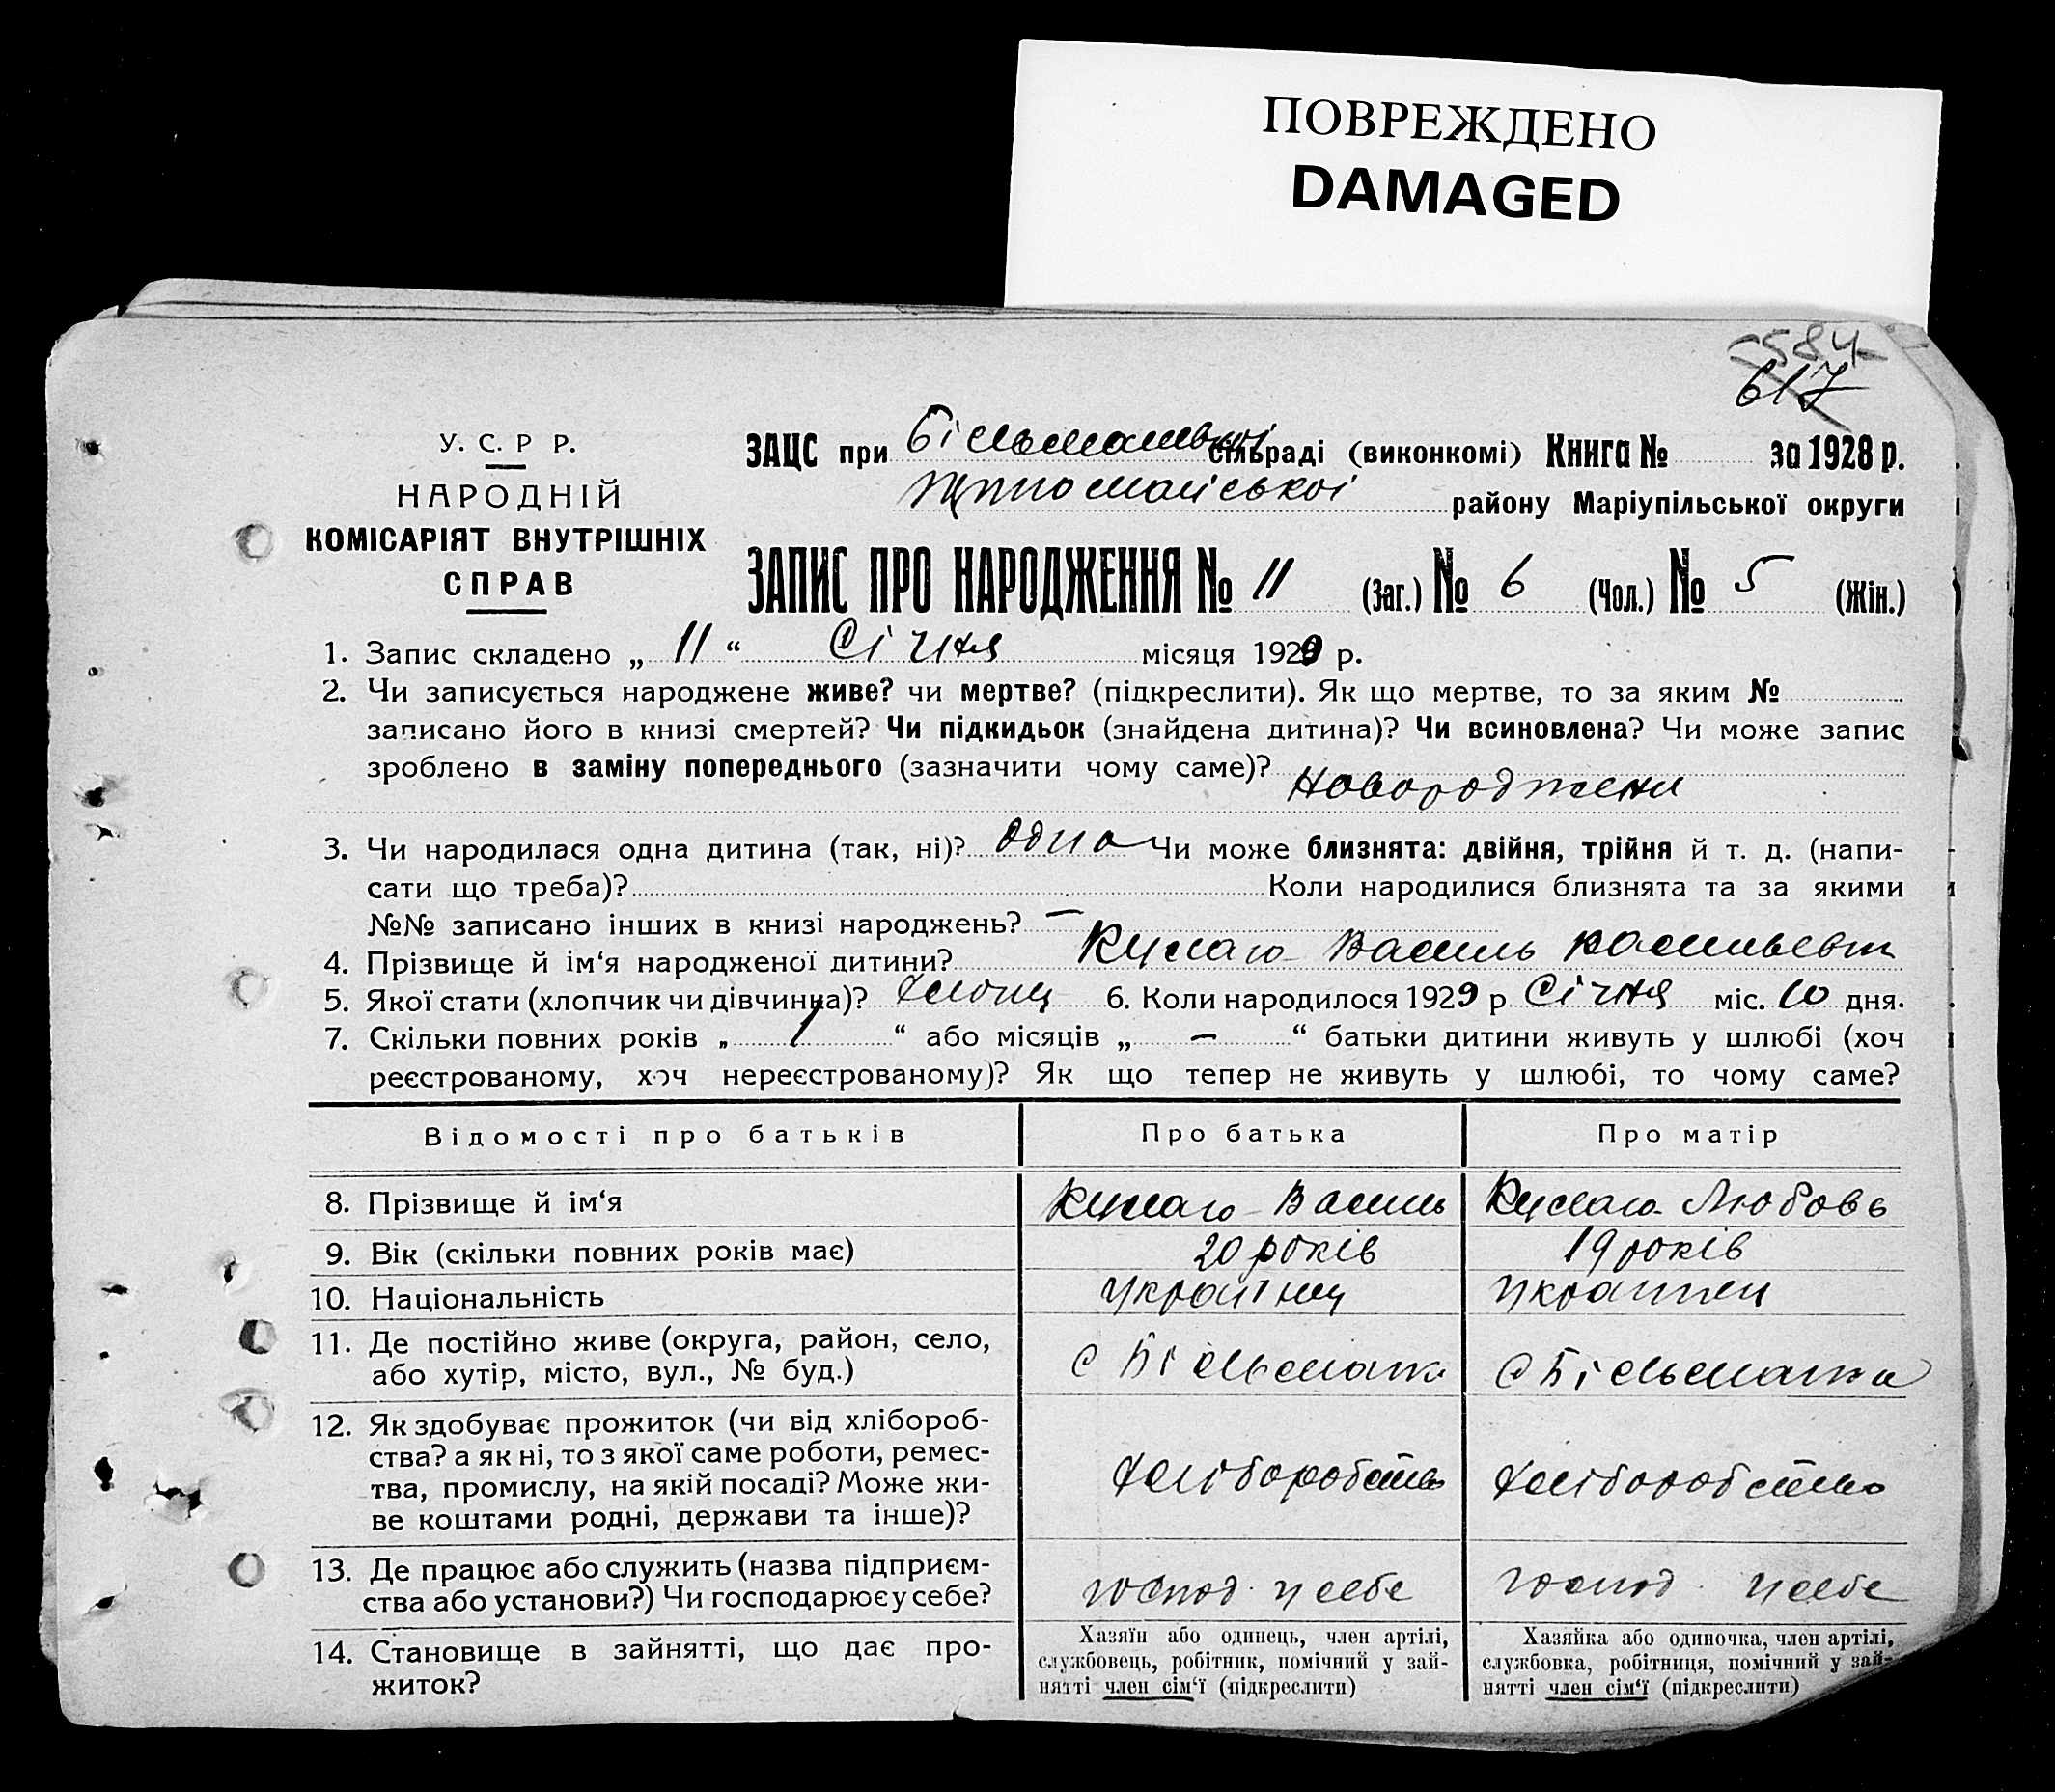 ПОВРЕЖДЕНО
DAMAGED
584
617
У. С. Р Р.
НАРОДНІЙ
КОМІСАРІЯТ ВНУТРІШНІХ
СПРАВ
ЗАЦС при Більманській сільраді (виконкомі) Книга № за 1928 р.
району Маріупільської округи
ЗАПИС ПРО НАРОДЖЕННЯ № 11 (Заг.) № 6 (Чол.) № 5 (Жін.)
1. Запис складено „ 11 “ Січня місяця 1929 р.
2. Чи записується народжене живе? чи мертве? (підкреслити). Як що мертве, то за яким №
записано його в книзі смертей? Чи підкидьок (знайдена дитина)? Чи всиновлена? Чи може запис
зроблено в заміну попереднього (зазначити чому саме)?
Новороджени
3. Чи народилася одна дитина (так, ні)? одна Чи може близнята: двійня, трійня й т. д. (напи-
сати що треба)? Коли народилися близнята та за якими
№№ записано інших в книзі народжень? —
4. Прізвище й ім‘я народженої дитини? Василь
5. Якої стати (хлопчик чи дівчинка)? хлопц 6. Коли народилося 1929 р Січня міс. 10 дня.
7. Скільки повних років „ 1 “ або місяців „ — “ батьки дитини живуть у шлюбі (хоч
реєстрованому, хоч нереєстрованому)? Як що тепер не живуть у шлюбі, то чому саме?
Відомості про батьків Про батька Про матір
8. Прізвище й ім‘я Василь Любовь
9. Вік (скільки повних років має) 20 років 19 років
10. Національність Українц Украпнки
11. Де постійно живе (округа, район, село,
або хутір, місто, вул., № буд.) с Більманка с Більманка
12. Як здобуває прожиток (чи від хлібороб-
ства? а як ні, то з якої саме роботи, ремес-
тва, промислу, на якій посаді? Може жи-
ве коштами родні, держави та інше)? хліборобство хліборобство
13. Де працює або служить (назва підприєм-
ства або установи?) Чи господарює у себе? господ. у себе господ. у себе
14. Становище в зайнятті, що дає про-
житок?
Хазяїн або одинець, член артілі,
службовець, робітник, помічний у зай-
нятті член сім‘ї (підкреслити)
Хазяйка або одиночка, член артілі,
службовка, робітниця, помічний у зай-
нятті член сім‘ї (підкреслити)